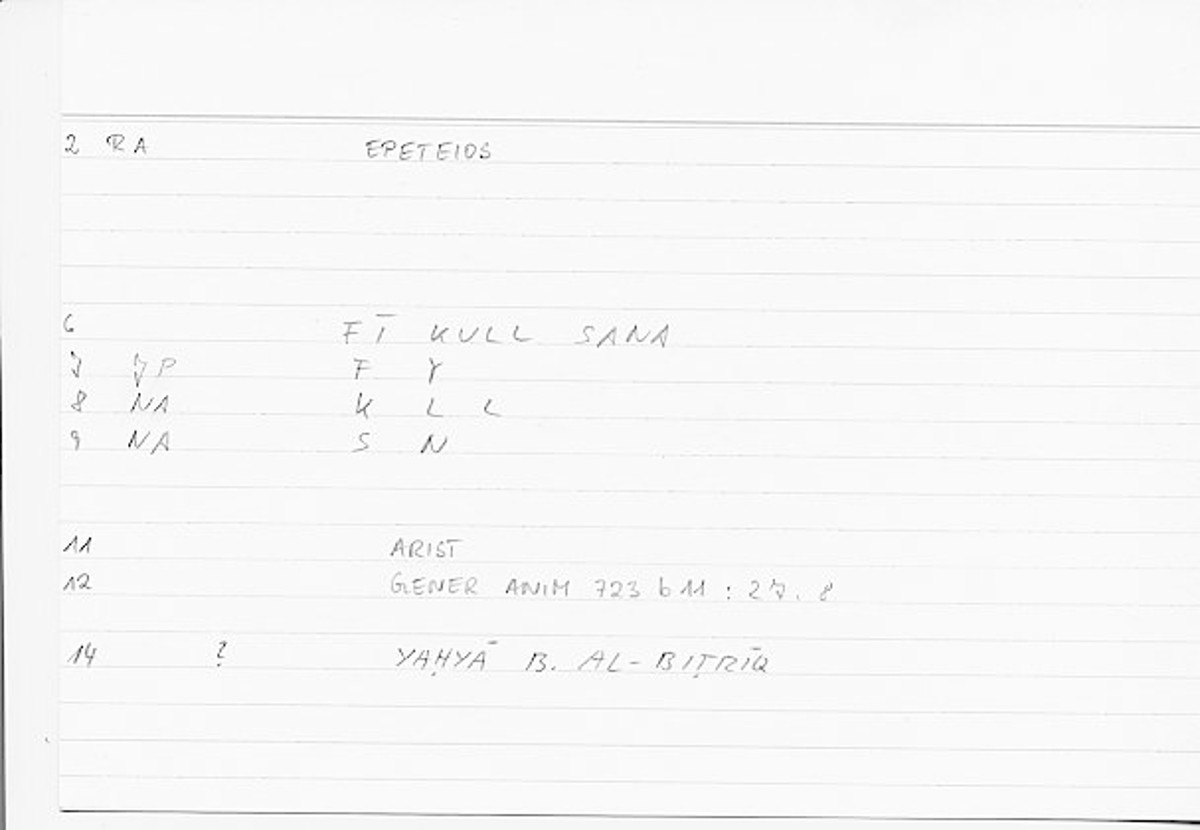 2 RA EPETEIOS
6 FĪ KULL SANA
7 JP F Y
8 NA K L L
9 NA S N
11 ARIST
12 GENER ANIM 723 b 11 : 27. 8
14 ? YAḤYĀ B. AL-BIṬRĪQ